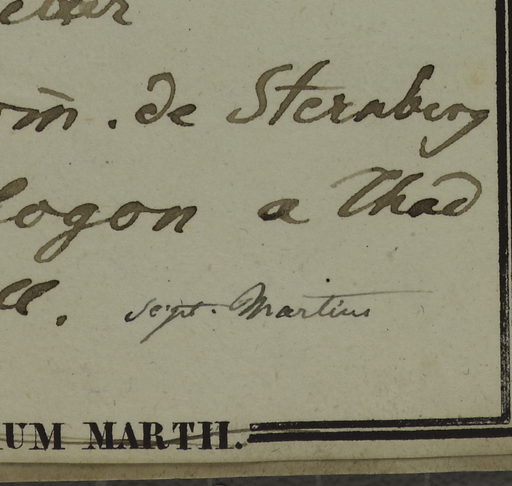 om̄. de Sternberg
logon a Thad
ll. sept. Martius
UM MARTII.